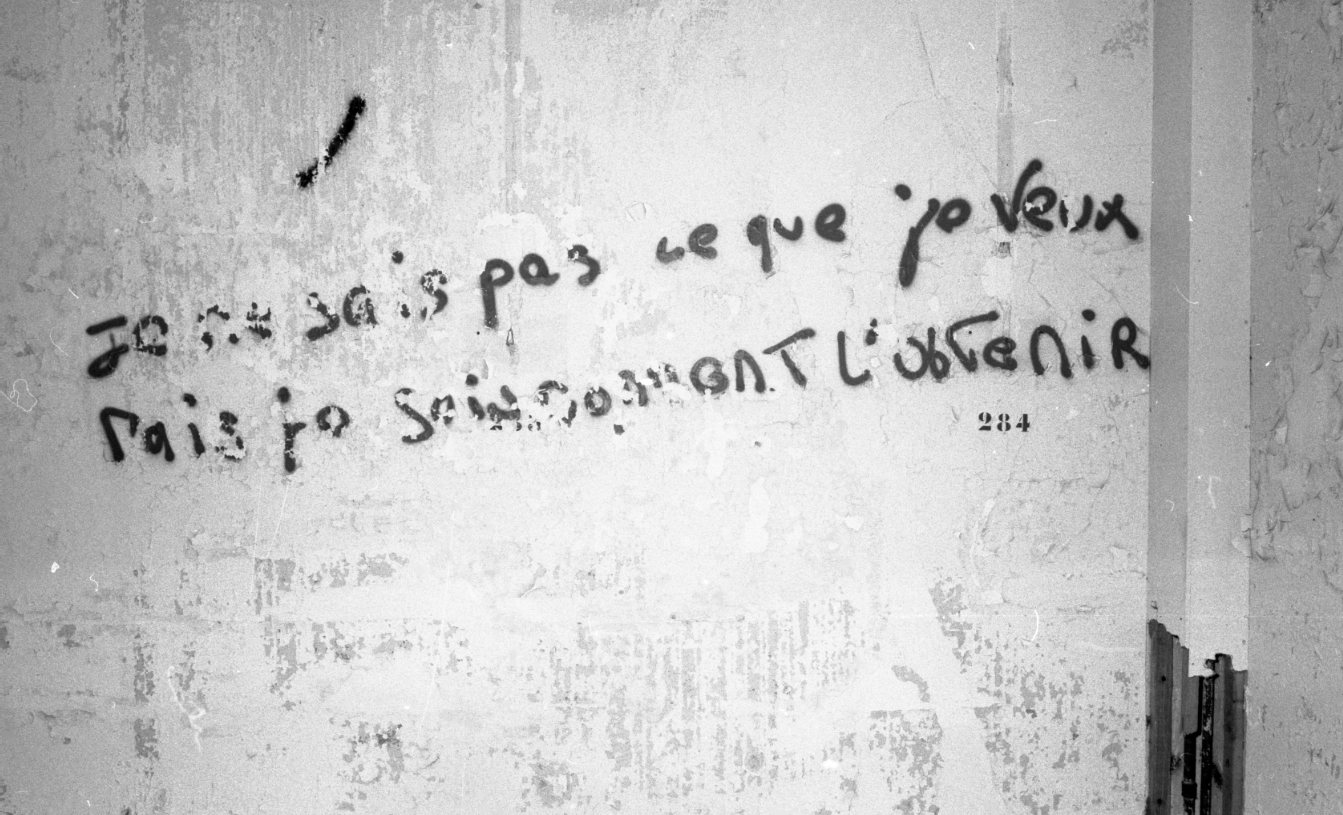 Je ne sais pas ce que je veux
Mais je sais comment L'obteniR
284